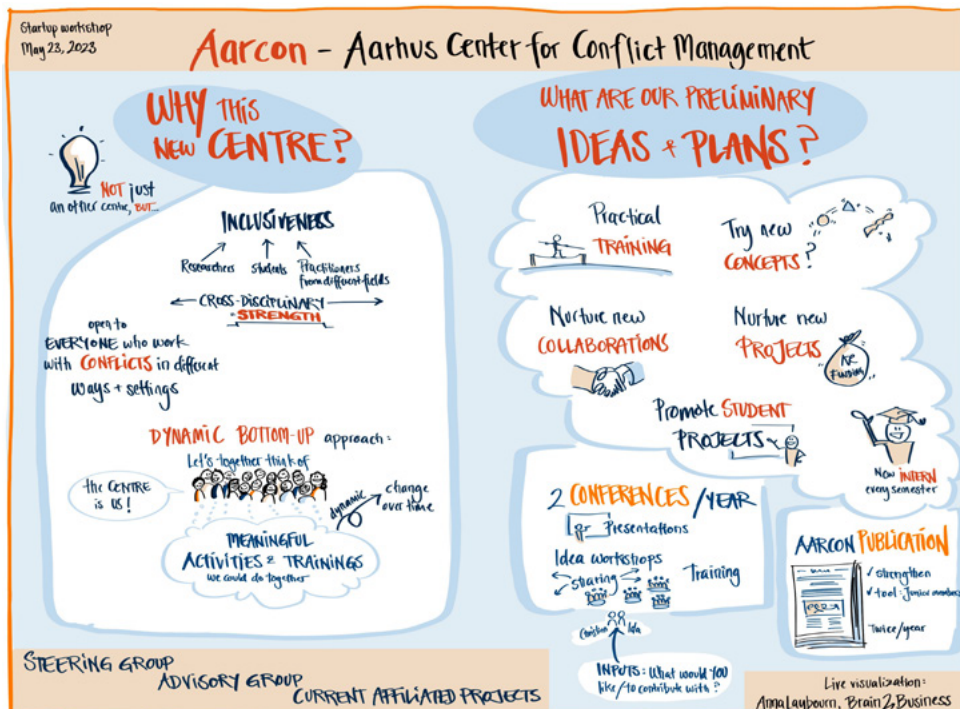 Startup workshop
May 23, 2023
Aarcon - Aarhus Center for Conflict Management
WHY THIS
NEW CENTRE?
NOT just
an other centre, BUT...
INCLUSIVENESS
Researchers
Students
Practitioners
from different fields
CROSS-DISCIPLINARY
STRENGTH
open to
EVERYONE who work
with CONFLICTS in different
ways + settings
DYNAMIC BOTTOM-UP approach:
Let's together think of
the CENTRE
is US!
dynamic
change
over time
MEANINGFUL
ACTIVITIES & TRAININGS
we could do together
STEERING GROUP
ADVISORY GROUP
CURRENT AFFILIATED PROJECTS
WHAT ARE OUR PRELIMINARY
IDEAS + PLANS?
Practical
TRAINING
Try new
CONCEPTS?
Nurture new
COLLABORATIONS
Nurture new
PROJECTS
FUNDING
Promote STUDENT
PROJECTS
New INTERN
every semester
2 CONFERENCES/YEAR
Presentations
Idea workshops
sharing
Training
Christian
Ida
INPUTS: What would YOU
like/to contribute with?
AARCON PUBLICATION
✓ strengthen
✓ tool: Junior members
Twice/year
Live visualization:
Anna Laybourn, Brain2Business